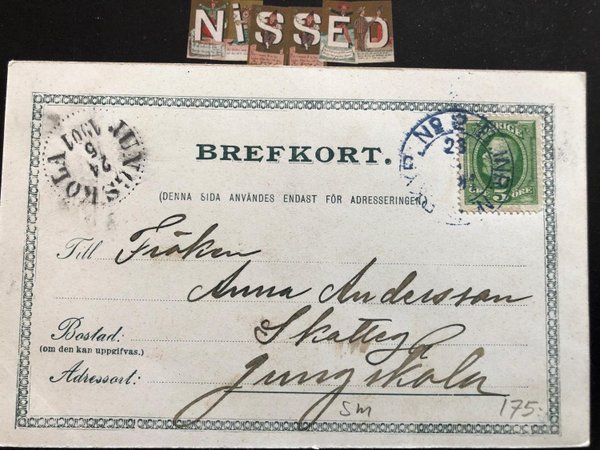 NiSSED
BREFKORT.
(DENNA SIDA ANVÄNDES ENDAST FÖR ADRESSERINGEN
JUNGSKOLA
24
5
1901
No 2
23
SVERIGE
5 ÖRE
Till Fröken
Anna Andersson
Skatteg
Bostad:
(om den kan uppgifvas.)
Adressort: Jungskola
SM
175:-